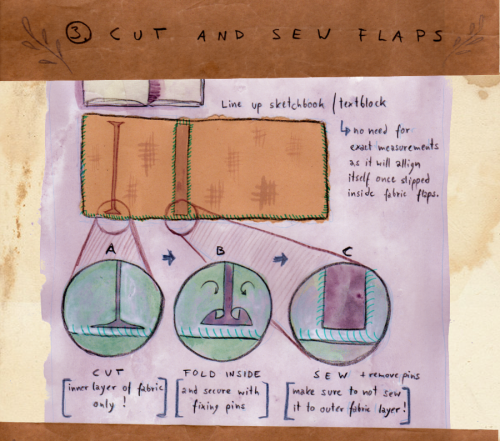 3. CUT AND SEW FLAPS
Line up sketchbook / textblock
↳ no need for
exact measurements
as it will allign
itself once slipped
inside fabric flaps.
A → B → C
CUT
[inner layer of fabric
only!]
FOLD INSIDE
[and secure with
fixing pins]
SEW + remove pins
[make sure to not sew
it to outer fabric layer!]